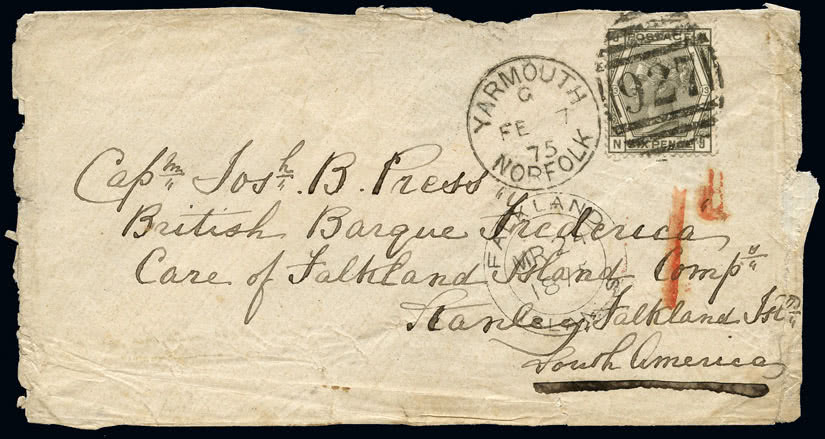 J POSTAGE N
927
N SIX PENCE J
YARMOUTH
G
FE 7
75
NORFOLK
1d
Capm Josh. B. Press
British Barque Frederica
Care of Falkland Island Compy
Stanley Falkland Isds
South America
FALKLAND ISLANDS
MR 24